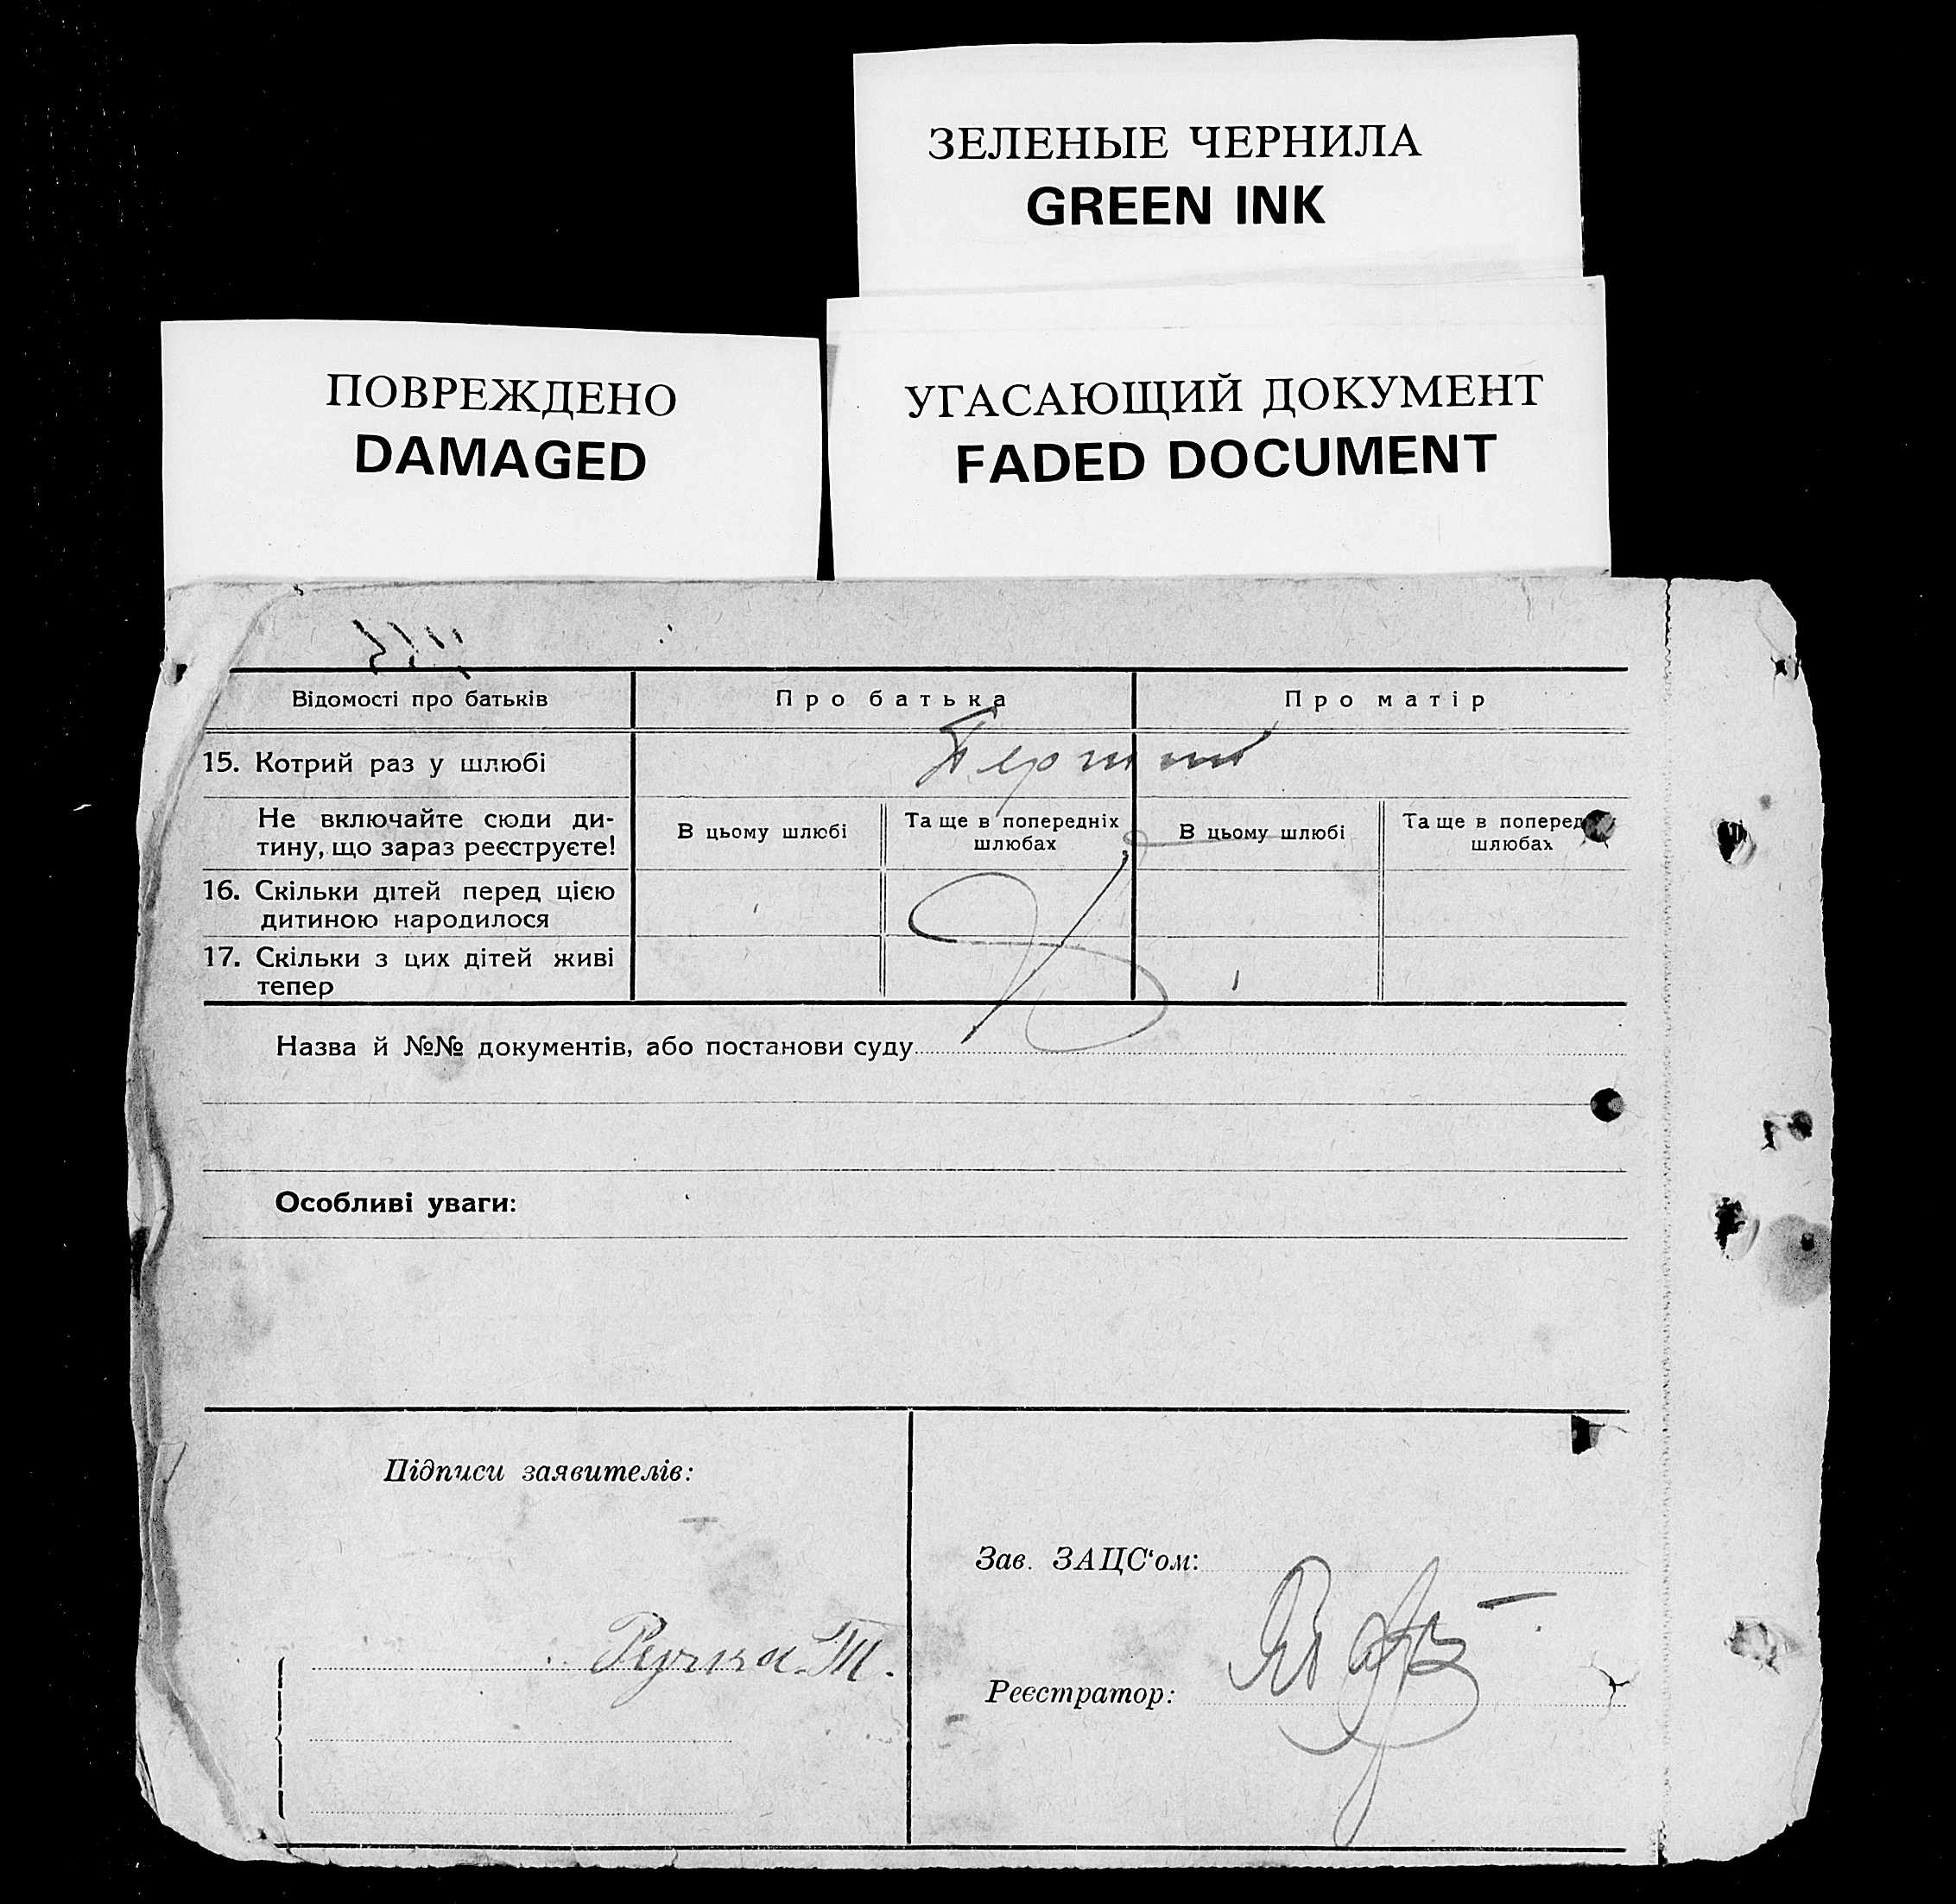 ЗЕЛЕНЫЕ ЧЕРНИЛА
GREEN INK
ПОВРЕЖДЕНО
DAMAGED
УГАСАЮЩИЙ ДОКУМЕНТ
FADED DOCUMENT
Відомості про батьків
Про батька
Про матір
15. Котрий раз у шлюбі
Не включайте сюди ди-
тину, що зараз реєструєте!
В цьому шлюбі
Та ще в попередніх
шлюбах
В цьому шлюбі
Та ще в поперед
шлюбах
16. Скільки дітей перед цією
дитиною народилося
17. Скільки з цих дітей живі
тепер
Назва й №№ документів, або постанови суду
Особливі уваги:
Підписи заявителів:
Зав. ЗАЦС‘ом:
Реєстратор: